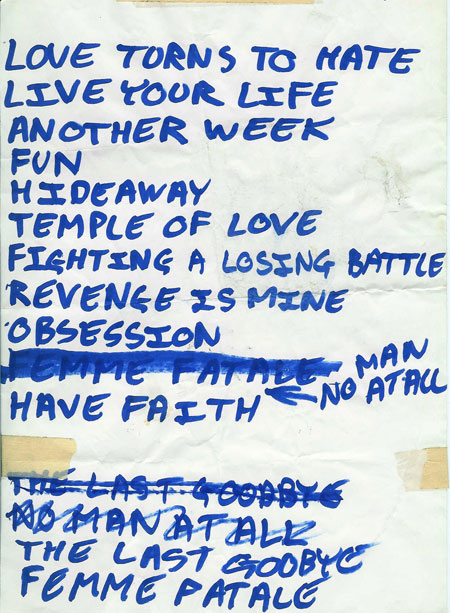 LOVE TORNS TO HATE
LIVE YOUR LIFE
ANOTHER WEEK
FUN
HIDEAWAY
TEMPLE OF LOVE
FIGHTING A LOSING BATTLE
REVENGE IS MINE
OBSESSION
FEMME FATALE MAN
HAVE FAITH NO AT ALL
THE LAST GOODBYE
NO MAN AT ALL
THE LAST GOODBYE
FEMME FATALE